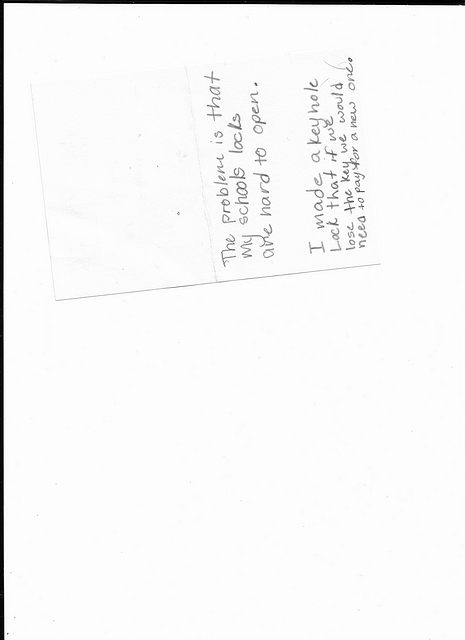 The problem is that
My schools locks
are hard to open.
I made a keyhole
Lock that if we
lose the key we would
need to pay for a new one.